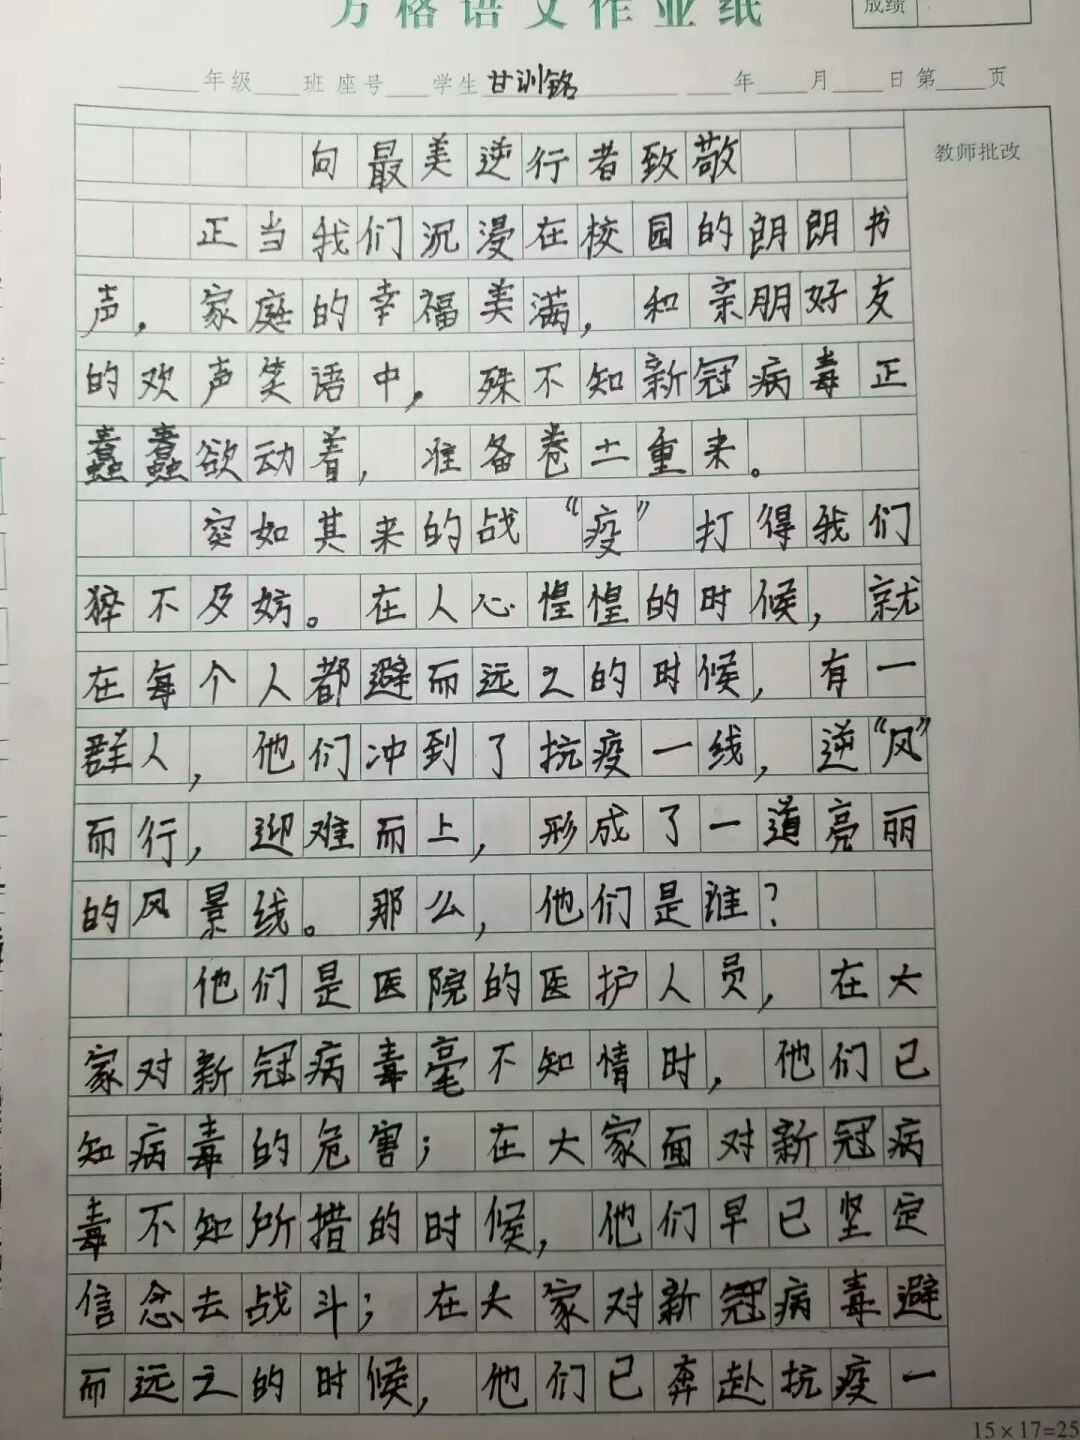 方格语文作业纸
成绩
年级 班 座号 学生 甘训铭 年 月 日 第 页
教师批改
向最美逆行者致敬
正当我们沉浸在校园的朗朗书
声，家庭的幸福美满，和亲朋好友
的欢声笑语中，殊不知新冠病毒正
蠢蠢欲动着，准备卷土重来。
突如其来的战“疫”打得我们
猝不及妨。在人心惶惶的时候，就
在每个人都避而远之的时候，有一
群人，他们冲到了抗疫一线，逆“风”
而行，迎难而上，形成了一道亮丽
的风景线。那么，他们是谁？
他们是医院的医护人员，在大
家对新冠病毒毫不知情时，他们已
知病毒的危害；在大家面对新冠病
毒不知所措的时候，他们早已坚定
信念去战斗；在大家对新冠病毒避
而远之的时候，他们已奔赴抗疫一
15×17=25